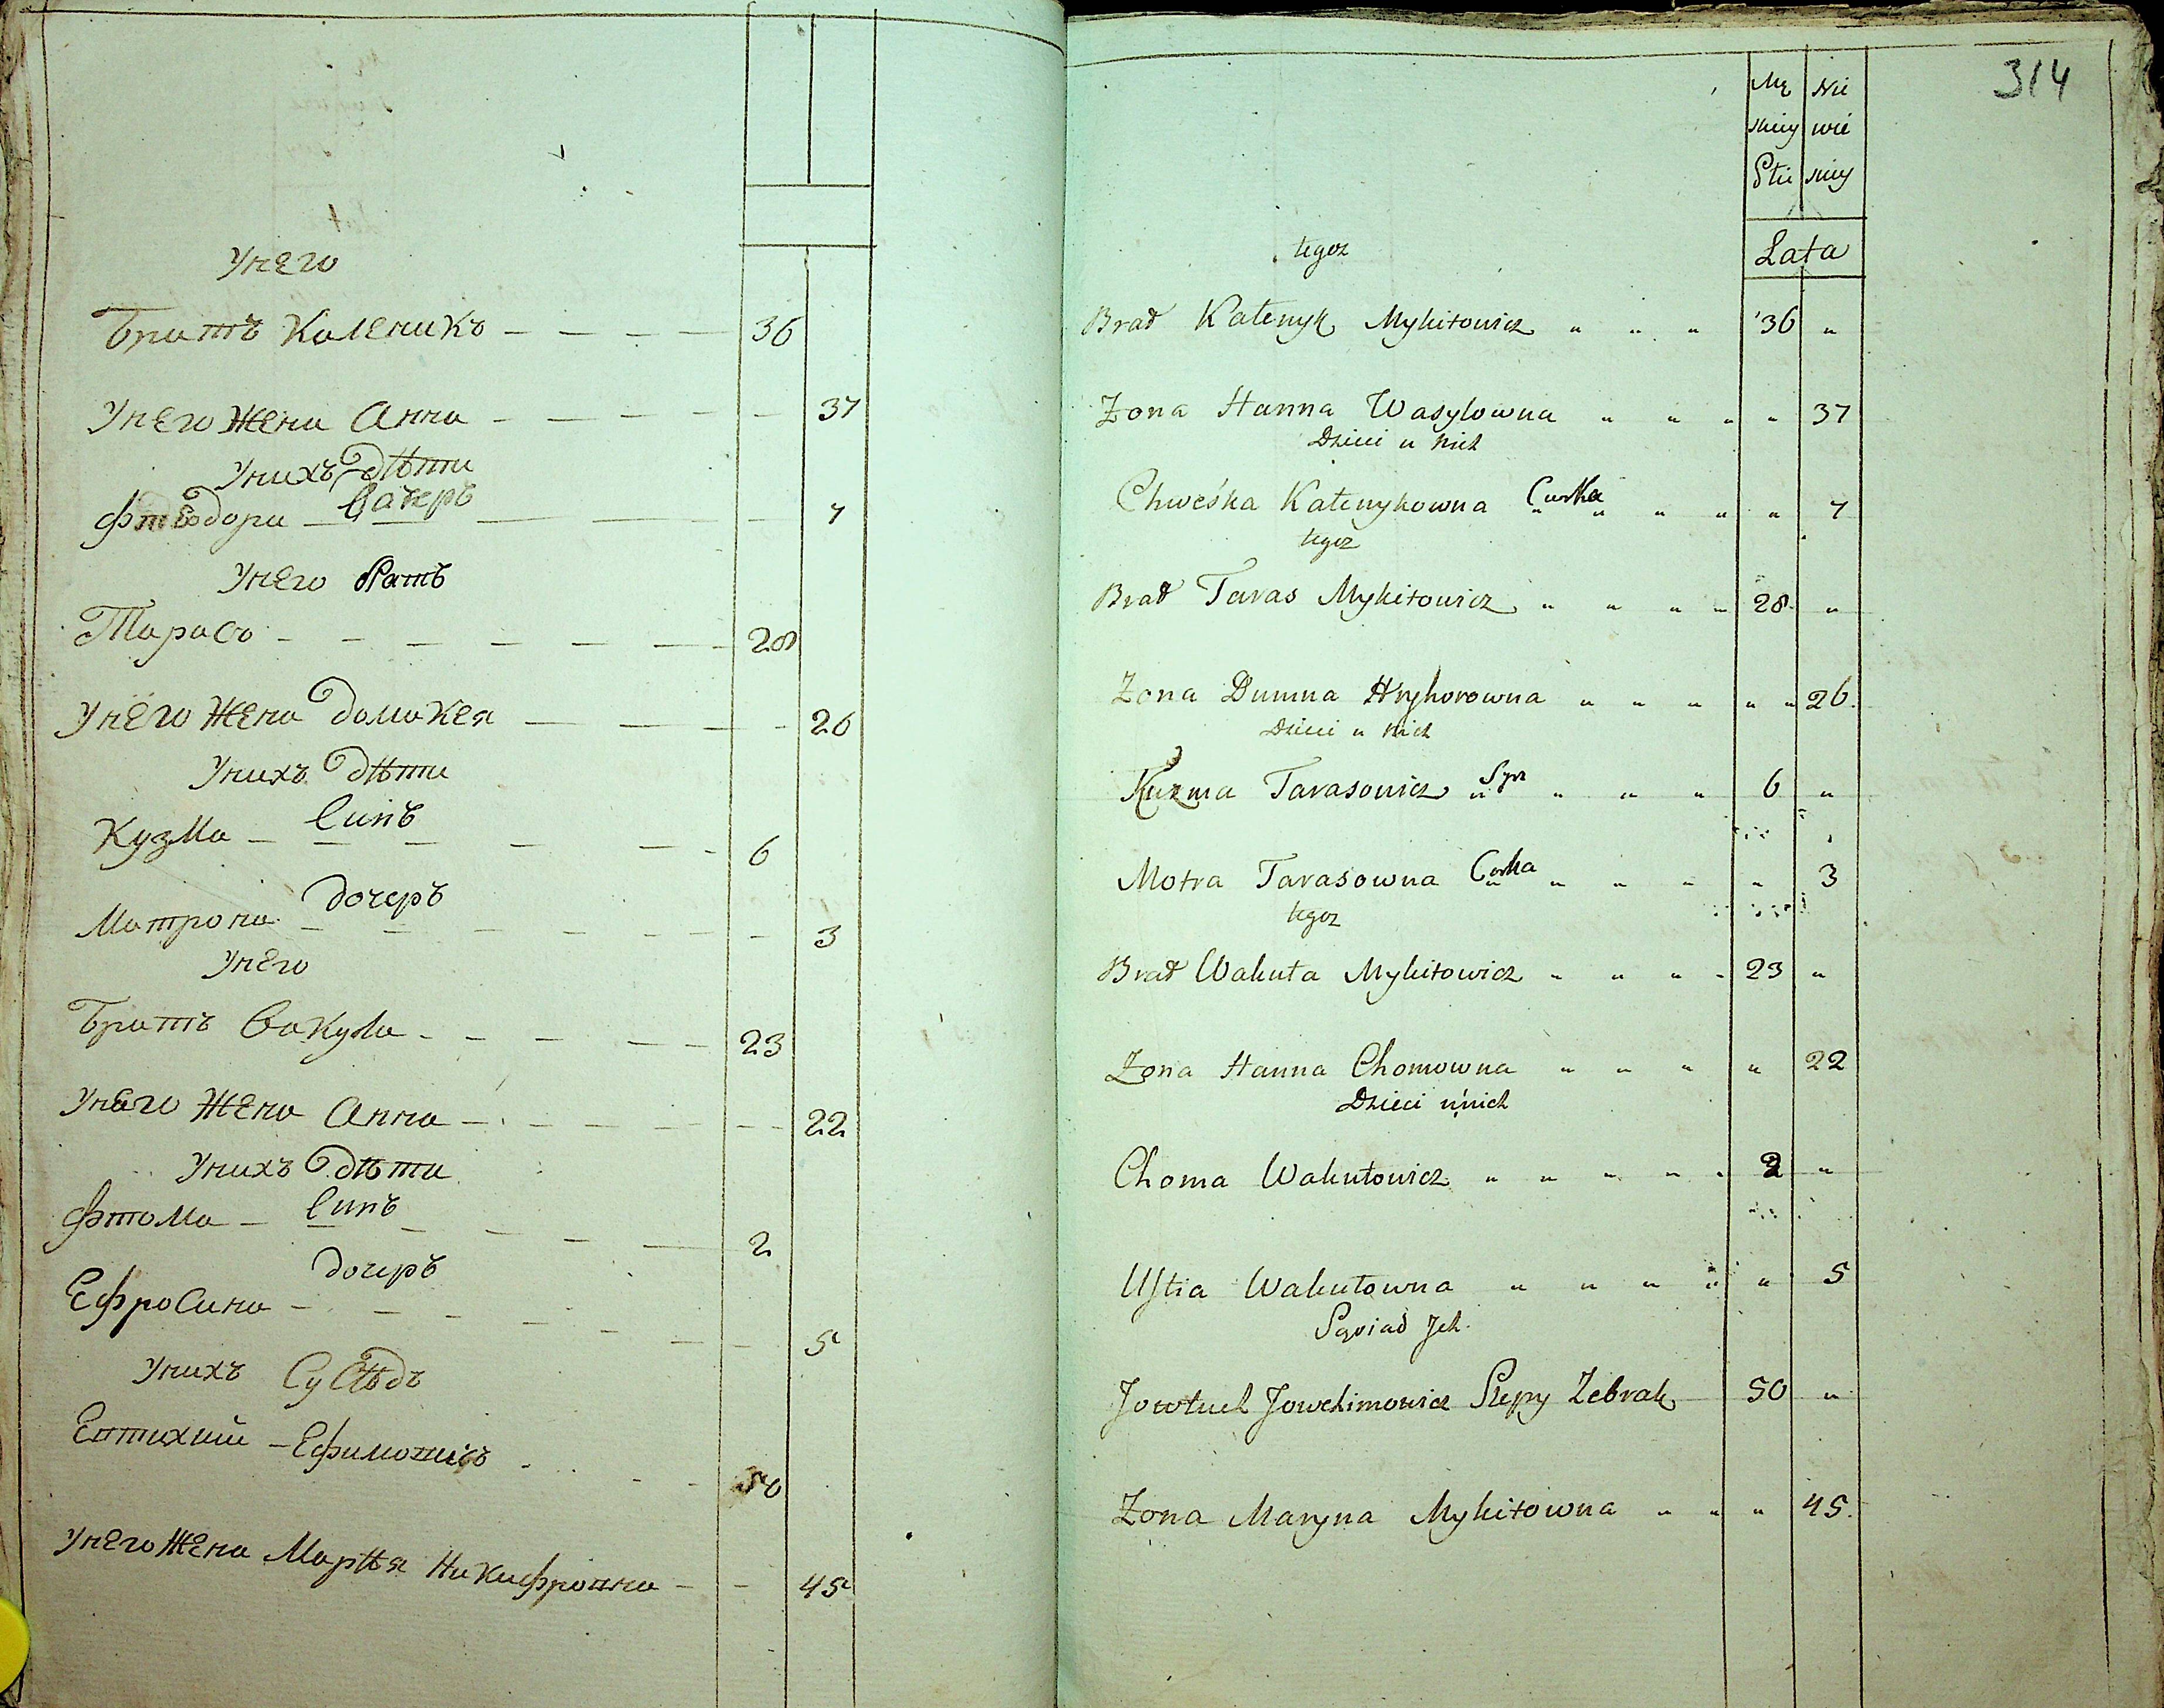 Унего
Братъ Каленикъ — — — — 36
Унего Жена Анна — — — — — 37
Унихъ Дѣти
Фтеодора — Дачеръ — — — 7
Унего Братъ
Тарасъ — — — — — — 28
Унего Жена Домикея — — — — 26
Унихъ Дѣти
Кузма — Синъ — — — — 6
Матрона — дочеръ — — — — — 3
Унего
Братъ Вакула — — — — — 23
Унего Жена Анна — — — — — 22
Унихъ Дѣти
Фтома — Синъ — — — — 2
Ефросина — дочеръ — — — — — 5
Унихъ Сусѣдъ
Евтихий — Ефимовичъ — — 50
Унего Жена Марѣя Никифровна — — 45
314
Mę Nie
skiey wie
Płci skiey
Lata
tegoz
Brat Kalenyk Mykitowicz " " " 36 "
Zona Hanna Wasylowna " " " " 37
Dzieci u nich
Chweśka Kalenykowna Curka " " " " " 7
tegoz
Brat Taras Mykitowicz " " " " 28 "
Zona Dumna Hryhorowna " " " " " 26.
Dzieci u nich
Kuzma Tarasowicz Syn " " " " 6 "
Motra Tarasowna Corka " " " " " 3
tegoz
Brat Wakuła Mykitowicz " " " " 23 "
Zona Hanna Chomowna " " " " 22
Dzieci u nich
Choma Wakułowicz " " " " " 2 "
Ustia Wakułowna " " " " " 5
Sąsiad Ich
Jowtuch Jowchimowicz Slepy Zebrak 50 "
Zona Maryna Mykitowna " " " 45.